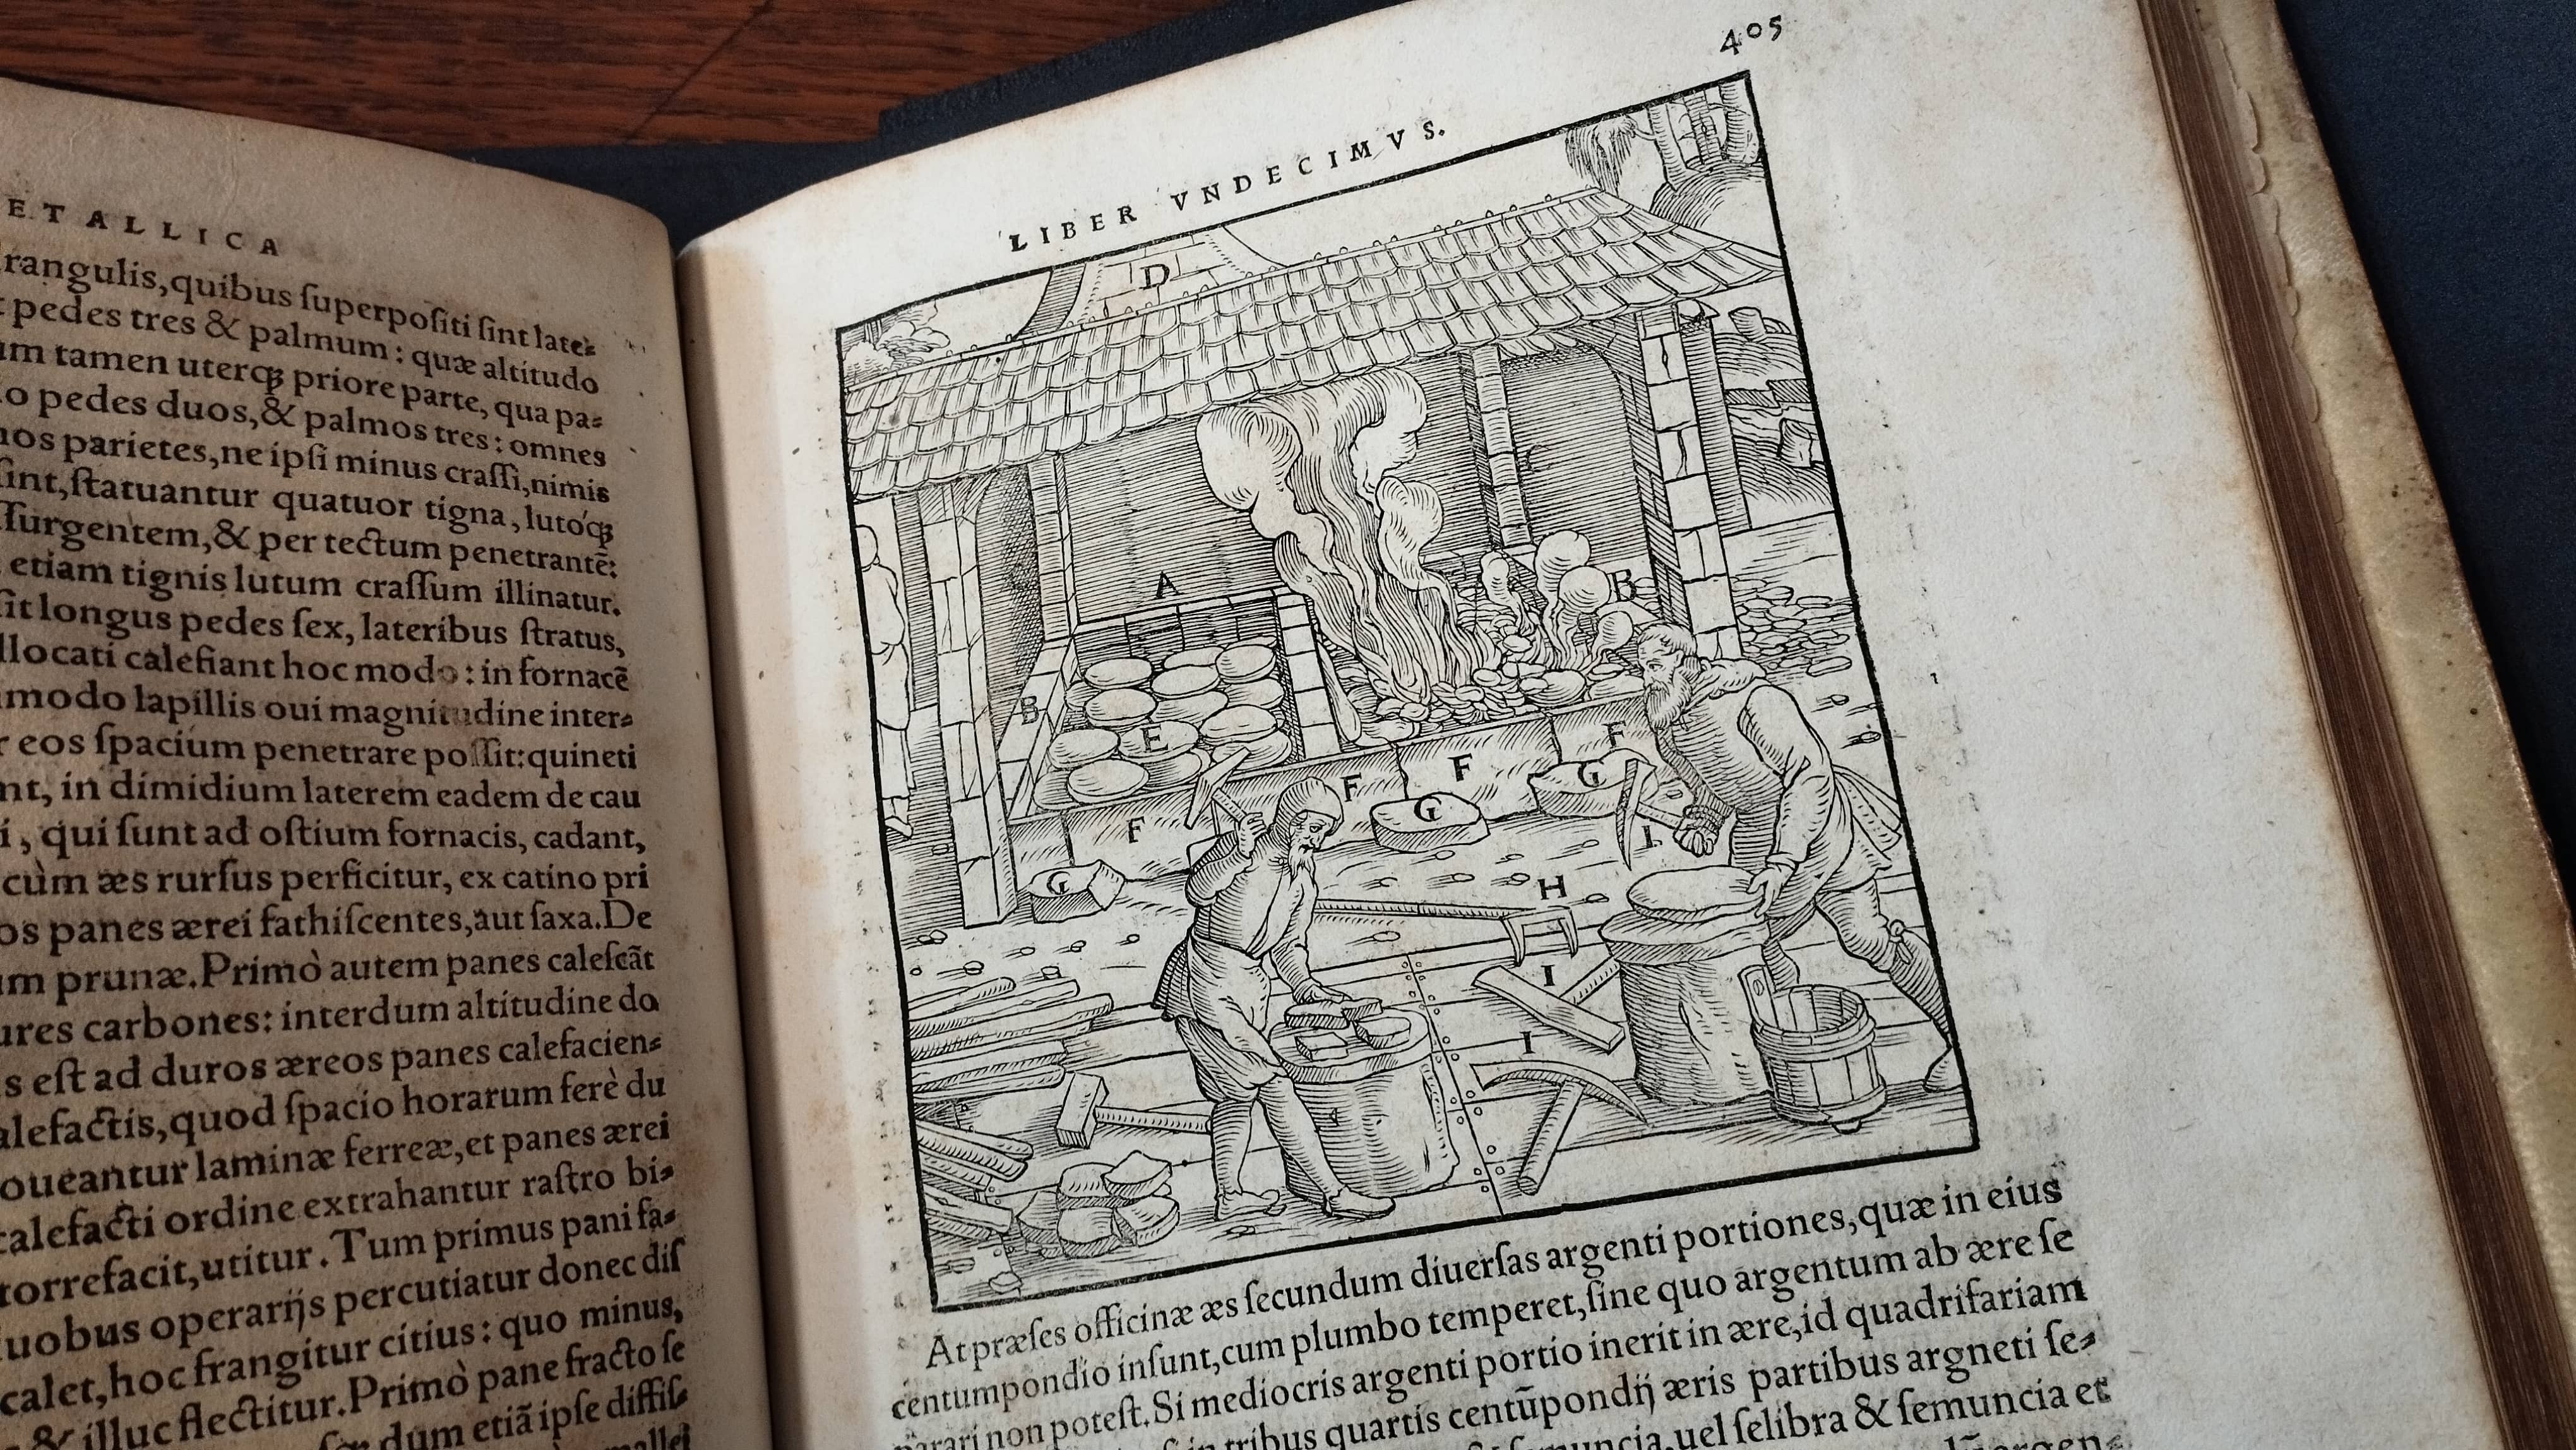 ETALLICA
rangulis,quibus ſuperpoſiti ſint late⸗
pedes tres & palmum: quæ altitudo
um tamen uterqꝫ priore parte, qua pa⸗
o pedes duos,& palmos tres: omnes
nos parietes,ne ipſi minus craſſi,nimis
ſint,ſtatuantur quatuor tigna, lutoqꝫ
ſſurgentem,& per tectum penetrantẽ:
etiam tignis lutum craſſum illinatur.
ſit longus pedes ſex, lateribus ſtratus,
llocati calefiant hoc modo: in fornacẽ
modo lapillis oui magnitudine inter⸗
eos ſpacium penetrare poſſit:quineti
nt, in dimidium laterem eadem de cau
i, qui ſunt ad oſtium fornacis, cadant,
cùm æs rurſus perficitur, ex catino pri
os panes ærei fathiſcentes,aut ſaxa.De
um prunæ.Primò autem panes caleſcãt
ures carbones: interdum altitudine do
s eſt ad duros æreos panes calefacien⸗
alefactis,quod ſpacio horarum ferè du
oueantur laminæ ferreæ,et panes ærei
calefacti ordine extrahantur raſtro bi⸗
torrefacit,utitur. Tum primus pani fa⸗
duobus operarijs percutiatur donec diſ
calet,hoc frangitur citius: quo minus,
& illuc flectitur.Primò pane fracto ſe
dum etiã ipſe diffiſ⸗
mallei
405
LIBER VNDECIMVS.
D
C
A
B
B
E
F
F
F
F
G
G
G
I
H
I
I
At præſes officinæ æs ſecundum diuerſas argenti portiones,quæ in eius
centumpondio inſunt,cum plumbo temperet,ſine quo argentum ab ære ſe
parari non poteſt.Si mediocris argenti portio inerit in ære,id quadrifariam
in tribus quartis centũpondij æris partibus argneti ſe⸗
uel ſelibra & ſemuncia et